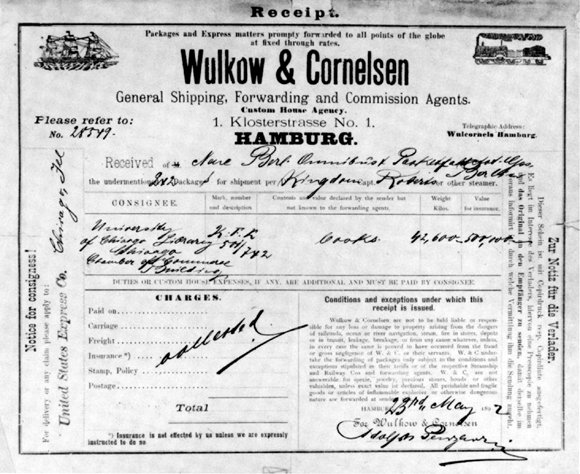 Receipt.
Packages and Express matters promptly forwarded to all points of the globe
at fixed through rates.
Wulkow & Cornelsen
General Shipping, Forwarding and Commission Agents.
Custom House Agency.
Please refer to:
No. 20549.
1. Klosterstrasse No. 1.
HAMBURG.
Telegraphic Address:
Wulcornels Hamburg.
Received of
the undermentioned 242 Packages for shipment per Kingdom capt. Roberts or other steamer.
CONSIGNEE.
Mark, number
and description
Contents and value declared by the sender but
not known to the forwarding agents.
Weight
Kilos.
Value
for insurance.
University
of Chicago Library
Chicago
Chamber of Commerce
Building
Books
42,600
DUTIES OR CUSTOM HOUSE EXPENSES, IF ANY, ARE ADDITIONAL AND MUST BE PAID BY CONSIGNEE.
CHARGES.
Paid on
Carriage
Freight
Insurance *)
Stamp, Policy
Postage
collected
Total
*) Insurance is not effected by us unless we are expressly
instructed to do so
Conditions and exceptions under which this
receipt is issued.
Wulkow & Cornelsen are not to be held liable or respon-
sible for any loss or damage to property arising from the dangers
of railroads, ocean or river navigation, steam, fire in stores, depots
or in transit, leakage, breakage, or from any cause whatever, unless,
in every case the same is proved to have occurred from the fraud
or gross negligence of W. & C. or their servants. W. & C. under-
take the forwarding of packages only subject to the conditions and
exceptions stipulated in their tariffs or of the respective Steamship
and Railway Cos and forwarding agents. W. & C. are not
answerable for specie, jewelry, precious stones, bonds or other
valuables, unless exact value is declared. All perishable and fragile
goods or articles of inflammable explosive or otherwise dangerous
nature are forwarded at
HAMBURG 23rd May 1892
For Wulkow & Cornelsen
Notice for consignees!
For delivery or any claim please apply to:
United States Express Co. Chicago, Ill
Zur Notiz für die Verlader.
Dieser Schein ist mit Copirdruck resp. Copirdinte ausgefertigt.
Es liegt im Interesse des Verladers, hiervon eine Presscopie zu nehmen
und das Original an den Empfänger zu senden, damit derselbe im
Voraus informirt wird, durch welche Vermittlung ihm die Sendung zugeht.